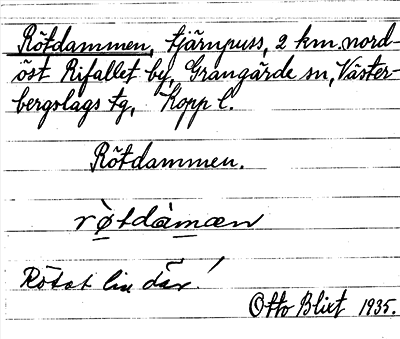 Rötdammen, tjärnpuss, 2 km. nord-
öst Rifallet by, Grangärde sn, Väster-
bergslags tg, Kopp. l.
Rötdammen.
rø̀tdàmæn
Rötat lin där!
Otto Blixt 1935.